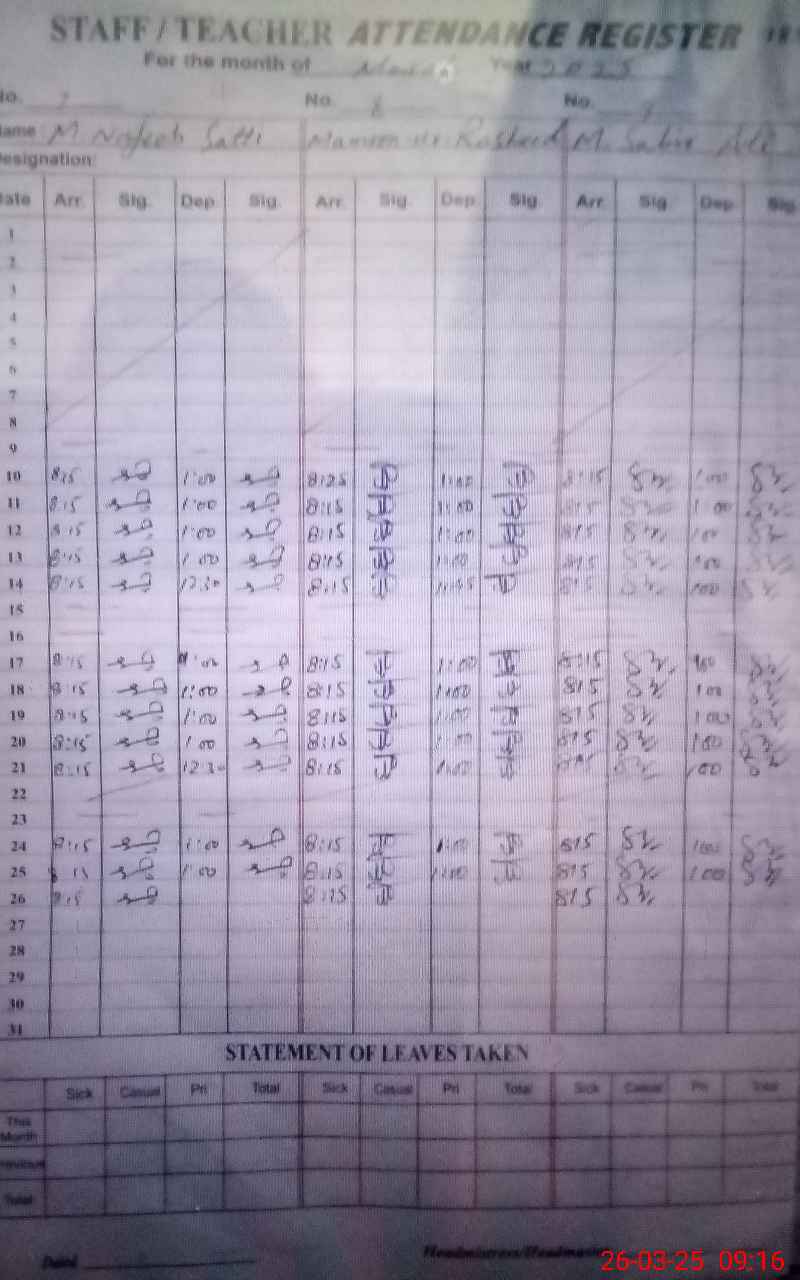 STAFF / TEACHER ATTENDANCE REGISTER
For the month of March Year 2025
No. 7 No. 8 No. 9
Name M Satti Rasheed M. Sabir Ali
Designation:
Date Arr. Sig. Dep. Sig. Arr. Sig. Dep. Sig. Arr. Sig. Dep. Sig.
1
2
3
4
5
6
7
8
9
10 8:15 1:00 8:25 1:00 8:15 1:00
11 8:15 1:00 8:15 1:00 815 1 00
12 8:15 1:00 8:15 1:00 815 100
13 8:15 1 00 8:15 1:00 815 100
14 8:15 12:30 8:15 815 100
15
16
17 8:15 8:15 1:00 8:15
18 8:15 1:00 8:15 1:00 815 100
19 8:15 1:00 8:15 1:00 815 100
20 8:15 1 00 8:15 1:00 815 100
21 8:15 12:30 8:15 1:00 815 100
22
23
24 8:15 1:00 8:15 1:00 815 100
25 8:15 1:00 8:15 1:00 815 100
26 8:15 8:15 815
27
28
29
30
31
STATEMENT OF LEAVES TAKEN
Sick Casual Pri Total Sick Casual Pri Total Sick Casual Pri Total
This Month
Previous
Total
Dated
Headmistress/Headmaster
26-03-25 09:16